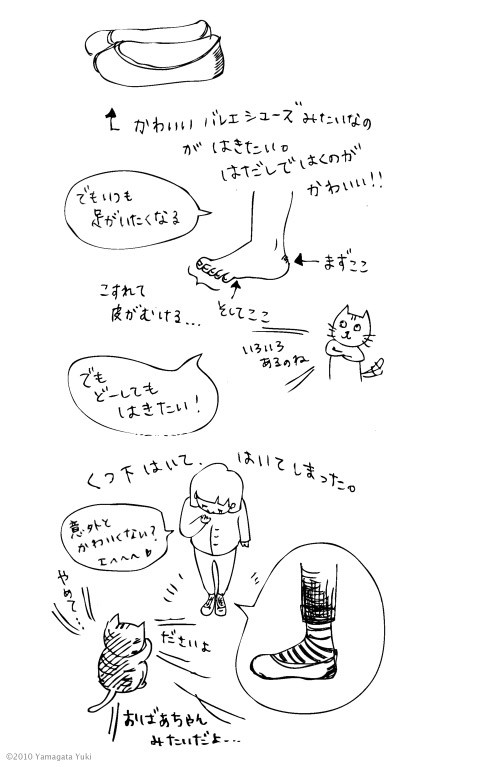 かわいい バレエシューズみたいなの
が はきたい。
はだしではくのが
かわいい!!
でもいつも
足がいたくなる
まずここ
そしてここ
こすれて
皮がむける...
いろいろ
あるのね
でも
どーしても
はきたい!
くつ下はいて、はいてしまった。
意外と
かわいくない?
エヘヘヘ
やめて...
ださいよ
おばあちゃん
みたいだよ...
©2010 Yamagata Yuki